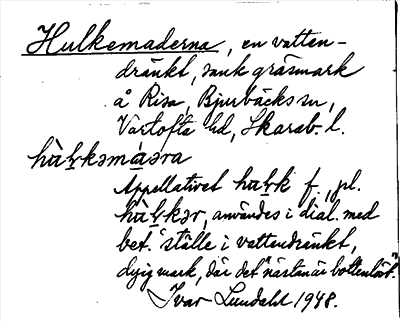 Hulkemaderna, en vatten-
dränkt, sank gräsmark
å Risa, Bjurbäcks sn,
Vartofta hd, Skarab. l.
hàlkəmáəra
Appellativet hàlk f., pl.
hàlkər, användes i dial. med
bet. "ställe i vattendränkt,
dyig mark, där det nästan är bottenlöst."
Ivar Lundahl 1948.